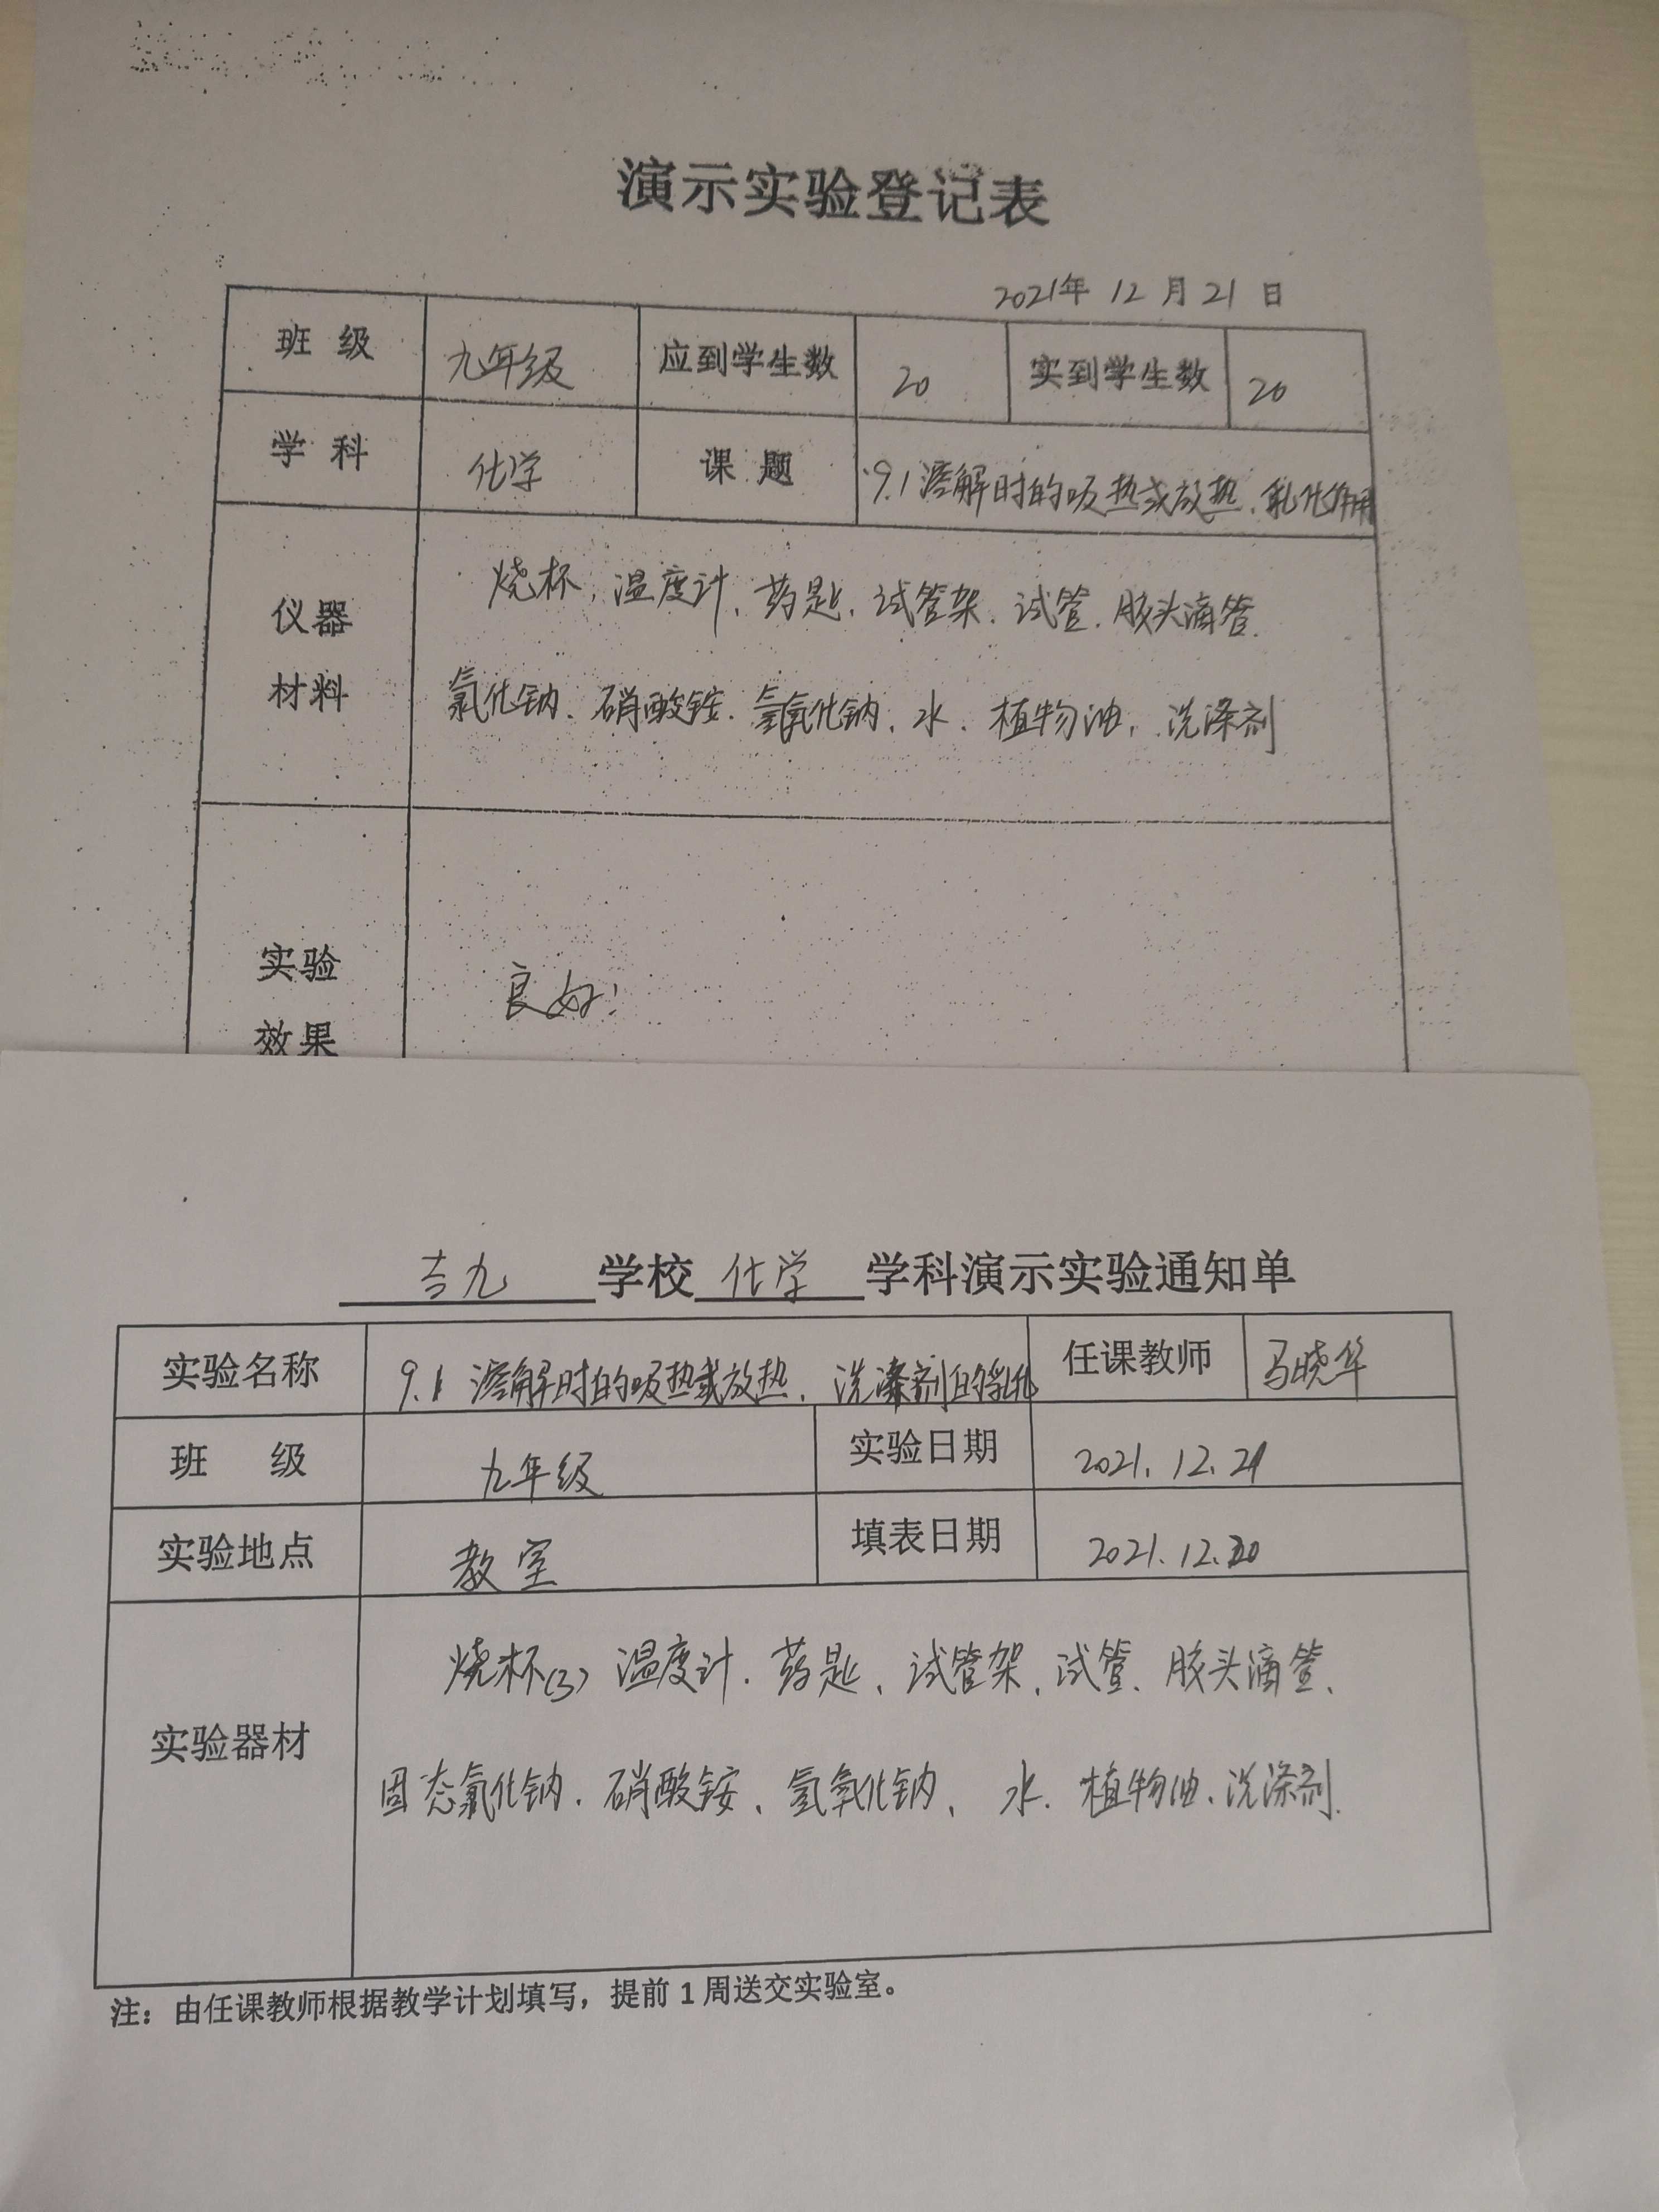 演示实验登记表
2021年 12 月 21 日
班 级 九年级 应到学生数 20 实到学生数 20
学 科 化学 课 题 9.1溶解时的吸热或放热、乳化作用
仪器
材料
烧杯、温度计、药匙、试管架、试管、胶头滴管、
氯化钠、硝酸铵、氢氧化钠、水、植物油、洗涤剂
实验
效果
良好!
吉九 学校 化学 学科演示实验通知单
实验名称 9.1 溶解时的吸热或放热、洗涤剂的乳化 任课教师 马晓华
班 级 九年级 实验日期 2021.12.21
实验地点 教室 填表日期 2021.12.20
实验器材
烧杯(3) 温度计、药匙、试管架、试管、胶头滴管、
固态氯化钠、硝酸铵、氢氧化钠、水、植物油、洗涤剂.
注：由任课教师根据教学计划填写，提前 1 周送交实验室。